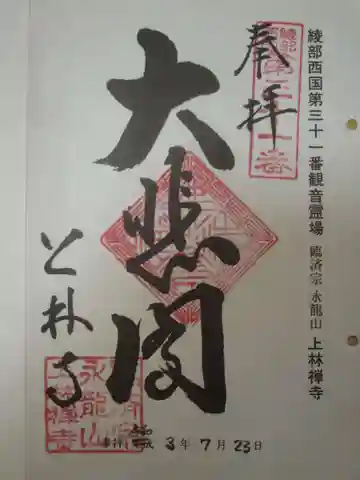 綾部西国第三十一番観音霊場 臨済宗 永龍山 上林禅寺
奉拝
大悲閣
上林寺
永龍山
3年7月23日